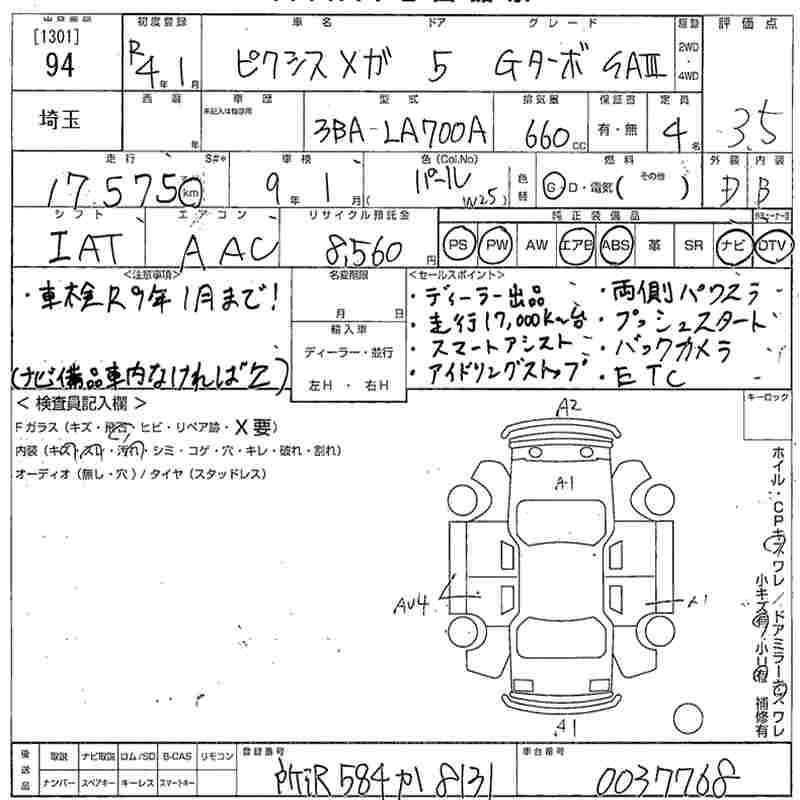 初度登録 車名 ドア グレード 駆動 評価点
[1301]
94
R4年1月 ピクシスメガ 5 Gターボ SAIII 2WD・4WD 3.5
埼玉
車歴 型式 排気量 保証書 定員
未記入は自家用
年 3BA-LA700A 660cc 有・無 4名
走行 S#* 車検 色(Col.No) 燃料 外装 内装
17,575km 9年1月 パール (W25) 色替 G・D・電気( その他 ) D B
シフト エアコン リサイクル預託金 純正装備品
IAT AAC 8,560円 PS PW AW エアB ABS 革 SR ナビ DTV
<注意事項> 名変期限 <セールスポイント>
・車検R9年1月まで! 月 日
・ディーラー出品 ・両側パワスラ
・走行17,000K~台 ・プッシュスタート
輸入車
・スマートアシスト ・バックカメラ
ディーラー・並行
(ナビ備品車内なければ欠) ・アイドリングストップ ・ETC
左H ・ 右H
< 検査員記入欄 > キーロック
Fガラス(キズ・飛石・ヒビ・リペア跡・X要)
内装(キズ・スレ・汚れ・シミ・コゲ・穴・キレ・破れ・割れ)
オーディオ(無し・穴)/タイヤ(スタッドレス)
A2
A1
AU4
A1
A1
ホイル・CPキズワレ/ドアミラーキズワレ
小キズ有・小U有 補修有
後送品 取説 ナビ取説 ロム/SD B-CAS リモコン 登録番号 車台番号
ナンバー スペアキー キーレス スマートキー 584 か 8131 0037768